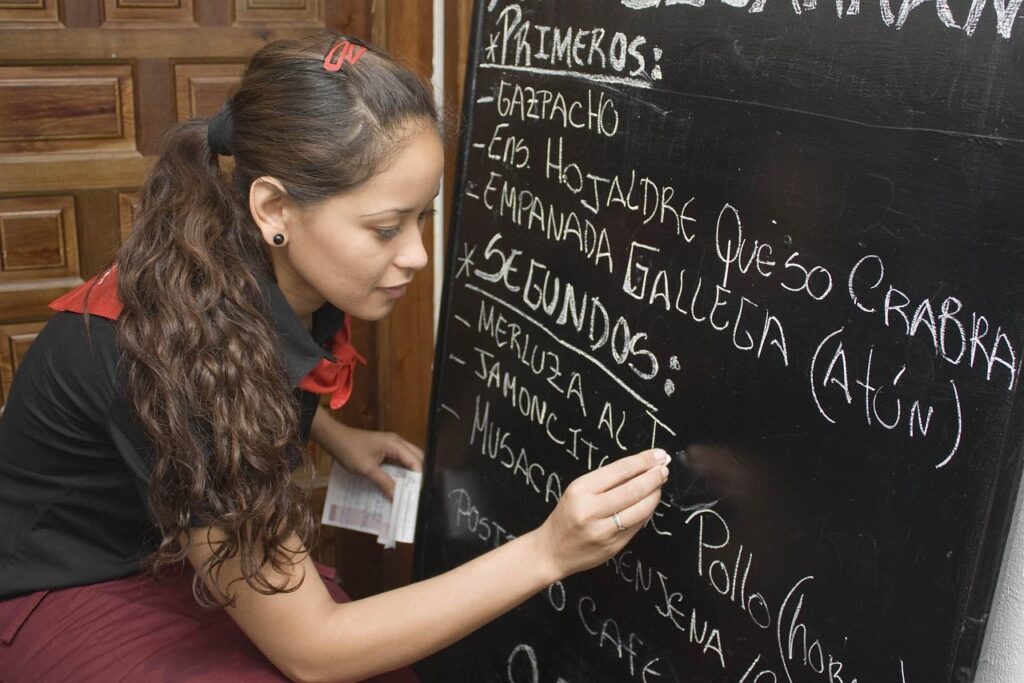 *PRIMEROS:
-GAZPACHO
-Ens. HOJALDRE QUESO CRABRA
-EMPANADA GALLEGA (ATÚN)
*SEGUNDOS:
- MERLUZA AL T
- JAMONCIT DE POLLO (hor
- MUSACA RENJENA
POST O CAFE